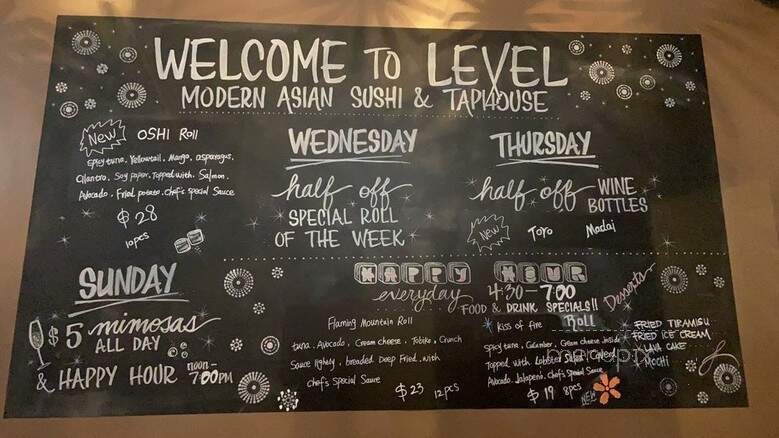 WELCOME TO LEVEL
MODERN ASIAN SUSHI & TAPHOUSE
New OSHI Roll
spicy tuna, Yellowtail, Mango, asparagus,
Cilantro, Soy paper, Topped with Salmon,
Avocado, Fried potato, chef's special Sauce
$28
10pcs
WEDNESDAY
half off
SPECIAL ROLL
OF THE WEEK
THURSDAY
half off WINE
BOTTLES
New Toro Madai
SUNDAY
$5 mimosas
ALL DAY
& HAPPY HOUR noon-
7:00PM
HAPPY HOUR
everyday 4:30-7:00
FOOD & DRINK SPECIALS!!
Flaming Mountain Roll
tuna, Avocado, Cream cheese, Tobiko, Crunch
Sauce lightly breaded Deep Fried, with
chef's Special Sauce
$23 12pcs
Kiss of fire ROLL
Spicy tuna, Cucumber, Cream cheese inside
Topped with Lobster Salad
Avocado, Jalapeno, Chef's Special Sauce
$19 8pcs
NEW
Desserts
FRIED TIRAMISU
FRIED ICE CREAM
LAVA CAKE
MOCHI